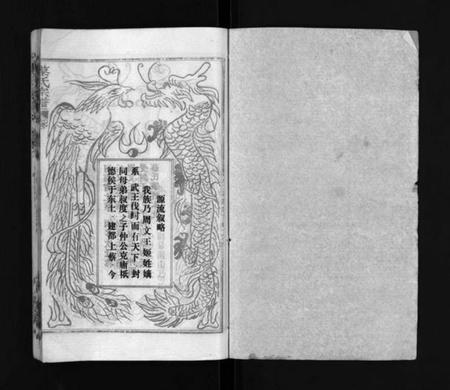 源流叙略
我族乃周文王姬姓嫡
系 武王伐纣而有天下 封
同母弟叔度之子仲公克庸祇
德侯于东土 建都上蔡 今